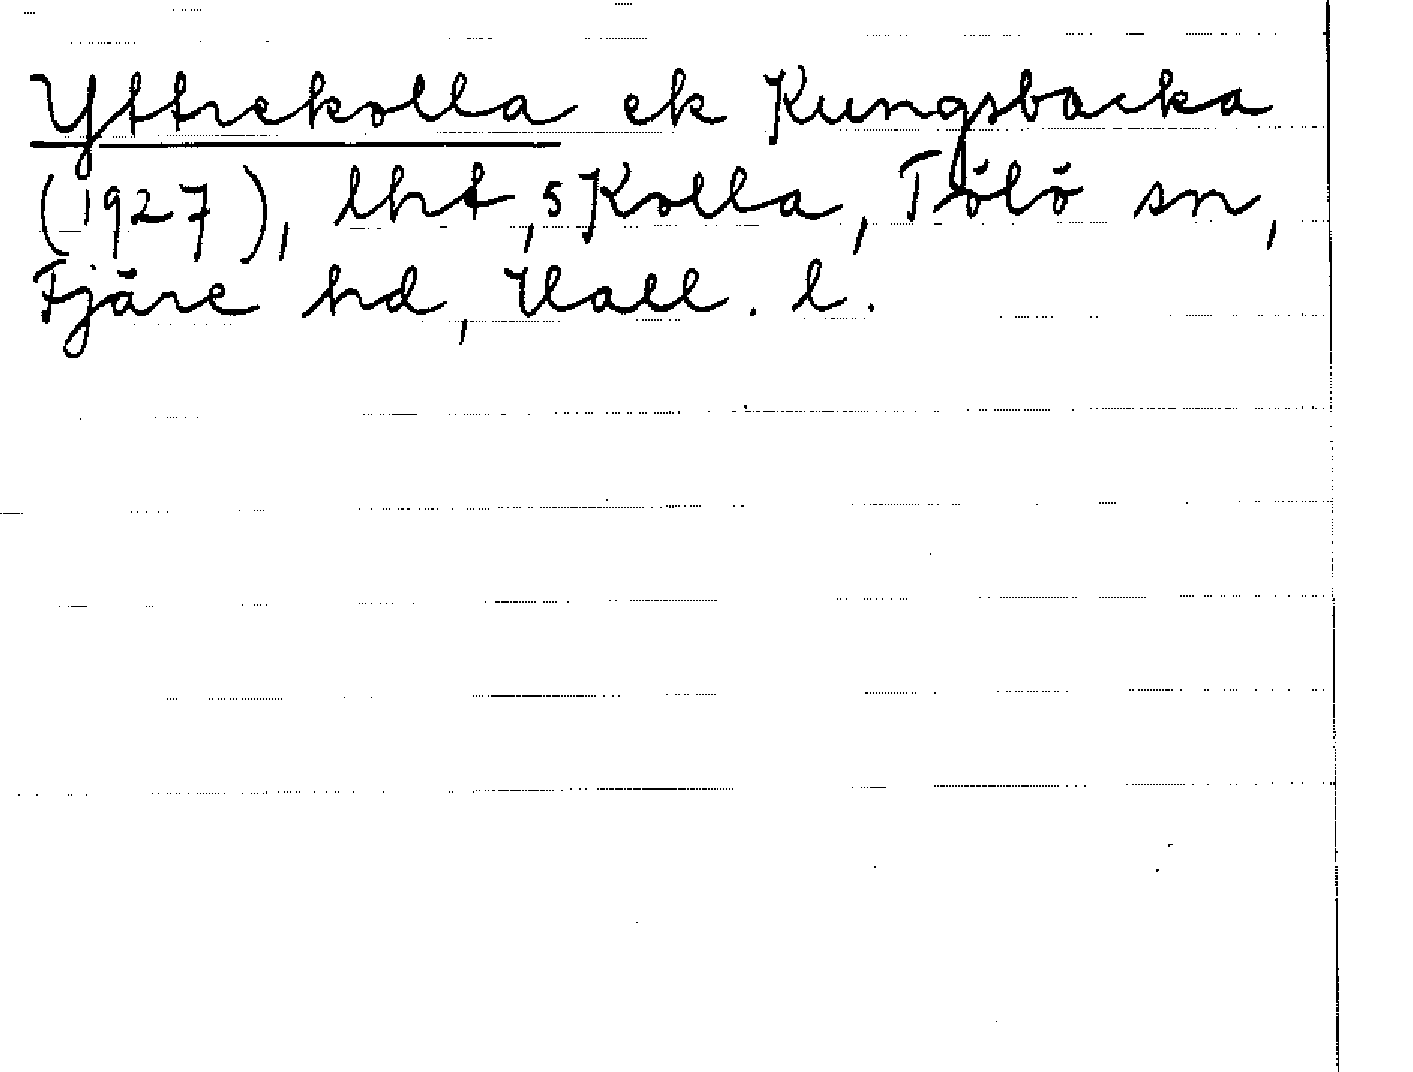 Yttrekolla ek Kungsbacka
(1927), lht, s Kolla, Tölö sn,
Fjäre hd, Hall. l.